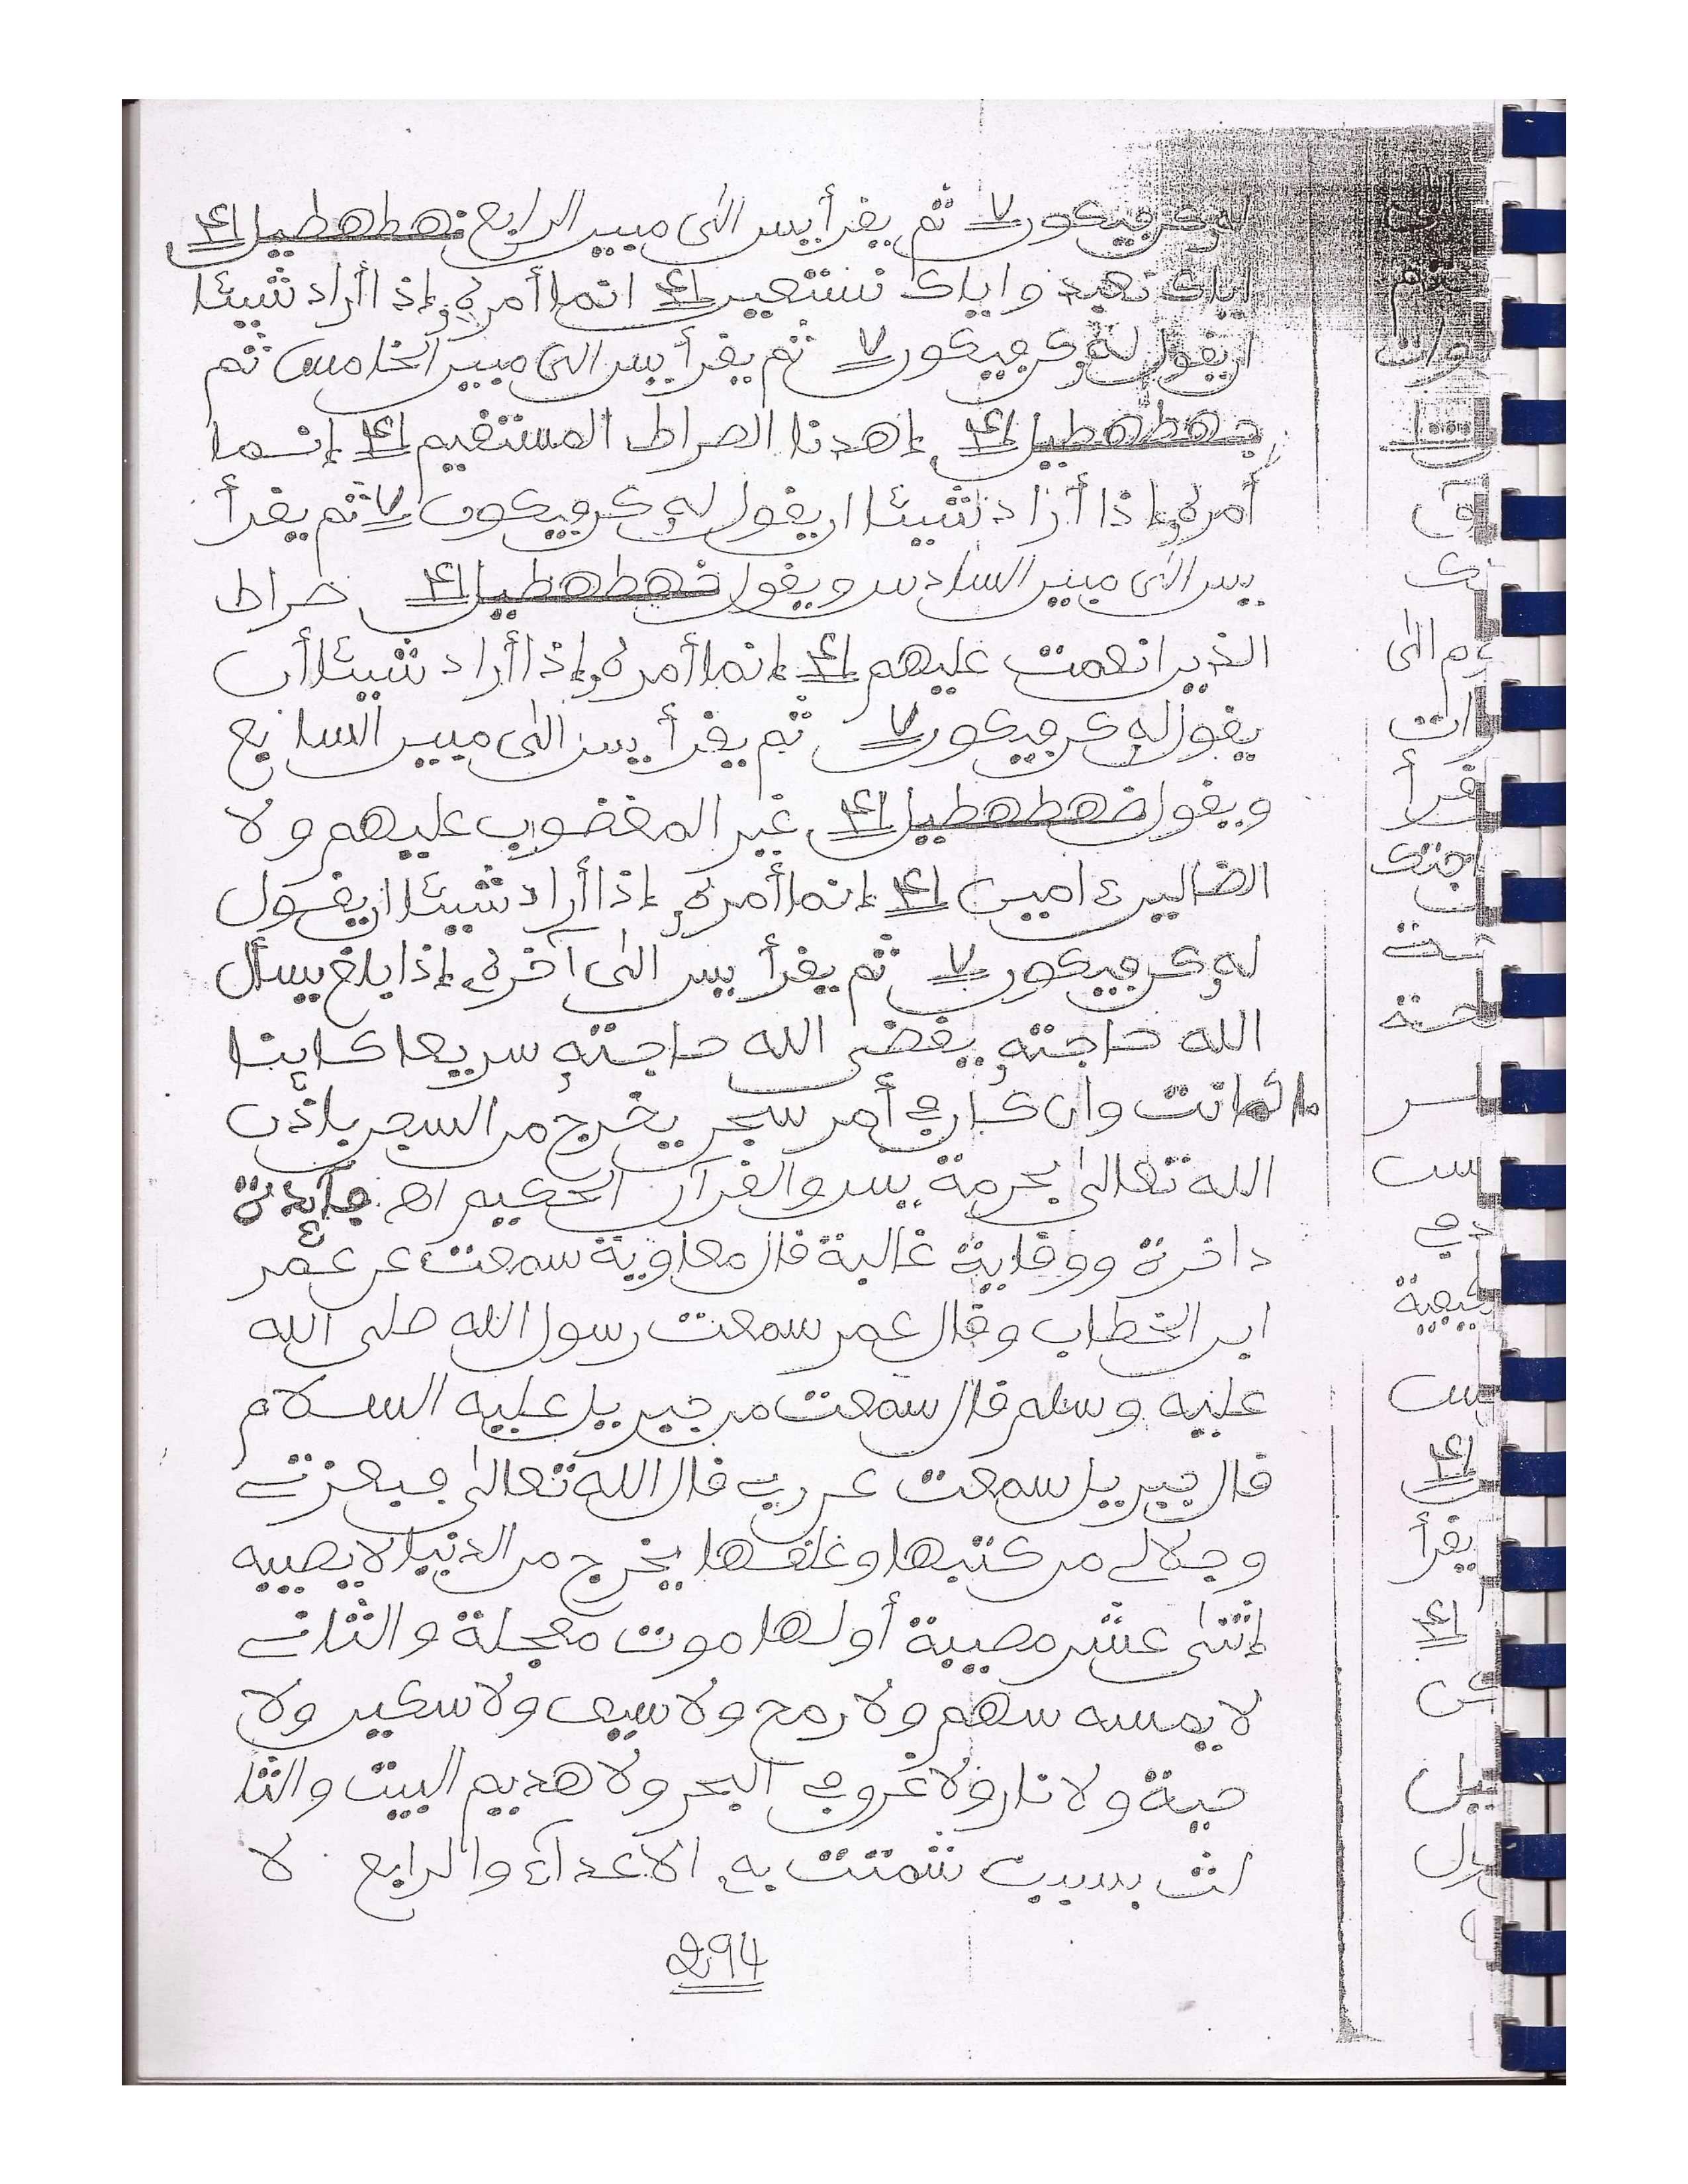 له كن فيكون ٧ ثم يقرأ يس الى مبين الرابع نهططهطيل ١٤
اياك نعبد واياك نستعين ١٤ انما أمره إذا أراد شيئا
ان يقول له كن فيكون ٧ ثم يقرأ يس الى مبين الخامس ثم
جهططهطيل ١٤ إهدنا الصراط المستقيم ١٤ إنما
أمره إذا أراد شيئا ان يقول له كن فيكون ٧ ثم يقرأ
يس الى مبين السادس ويقول خهططهطيل ١٤ صراط
الذين انعمت عليهم ١٤ إنما أمره إذا أراد شيئا أن
يقول له كن فيكون ٧ ثم يقرأ يس الى مبين السابع
ويقول خهططهطيل ١٤ غير المغضوب عليهم ولا
الضالين ءامين ١٤ إنما أمره إذا أراد شيئا ان يقول
له كن فيكون ٧ ثم يقرأ يس الى آخره إذا بلغ يسأل
الله حاجته يقضى الله حاجته سريعا كاينا
ما كانت وان كان في أمر سجن يخرج من السجن باذن
الله تعالى بحرمة يس والقرآن الحكيم اهـ جائدة
داخرة ووقاية غالبة قال معاوية سمعت عن عمر
ابن الخطاب وقال عمر سمعت رسول الله صلى الله
عليه وسلم قال سمعت من جبريل عليه السلام
قال جبريل سمعت عن ربي قال الله تعالى فبعزتي
وجلالي من كتبها وغلفها يخرج من الدنيا لا يصيبه
إثنى عشر مصيبة أولها موت معجلة والثاني
لا يمسه سهم ولا رمح ولا سيف ولا سكين ولا
حية ولا نار ولا غرو في البحر ولا هديم البيت والثا
لث بسبب شمتت به الاعداء والرابع لا
294